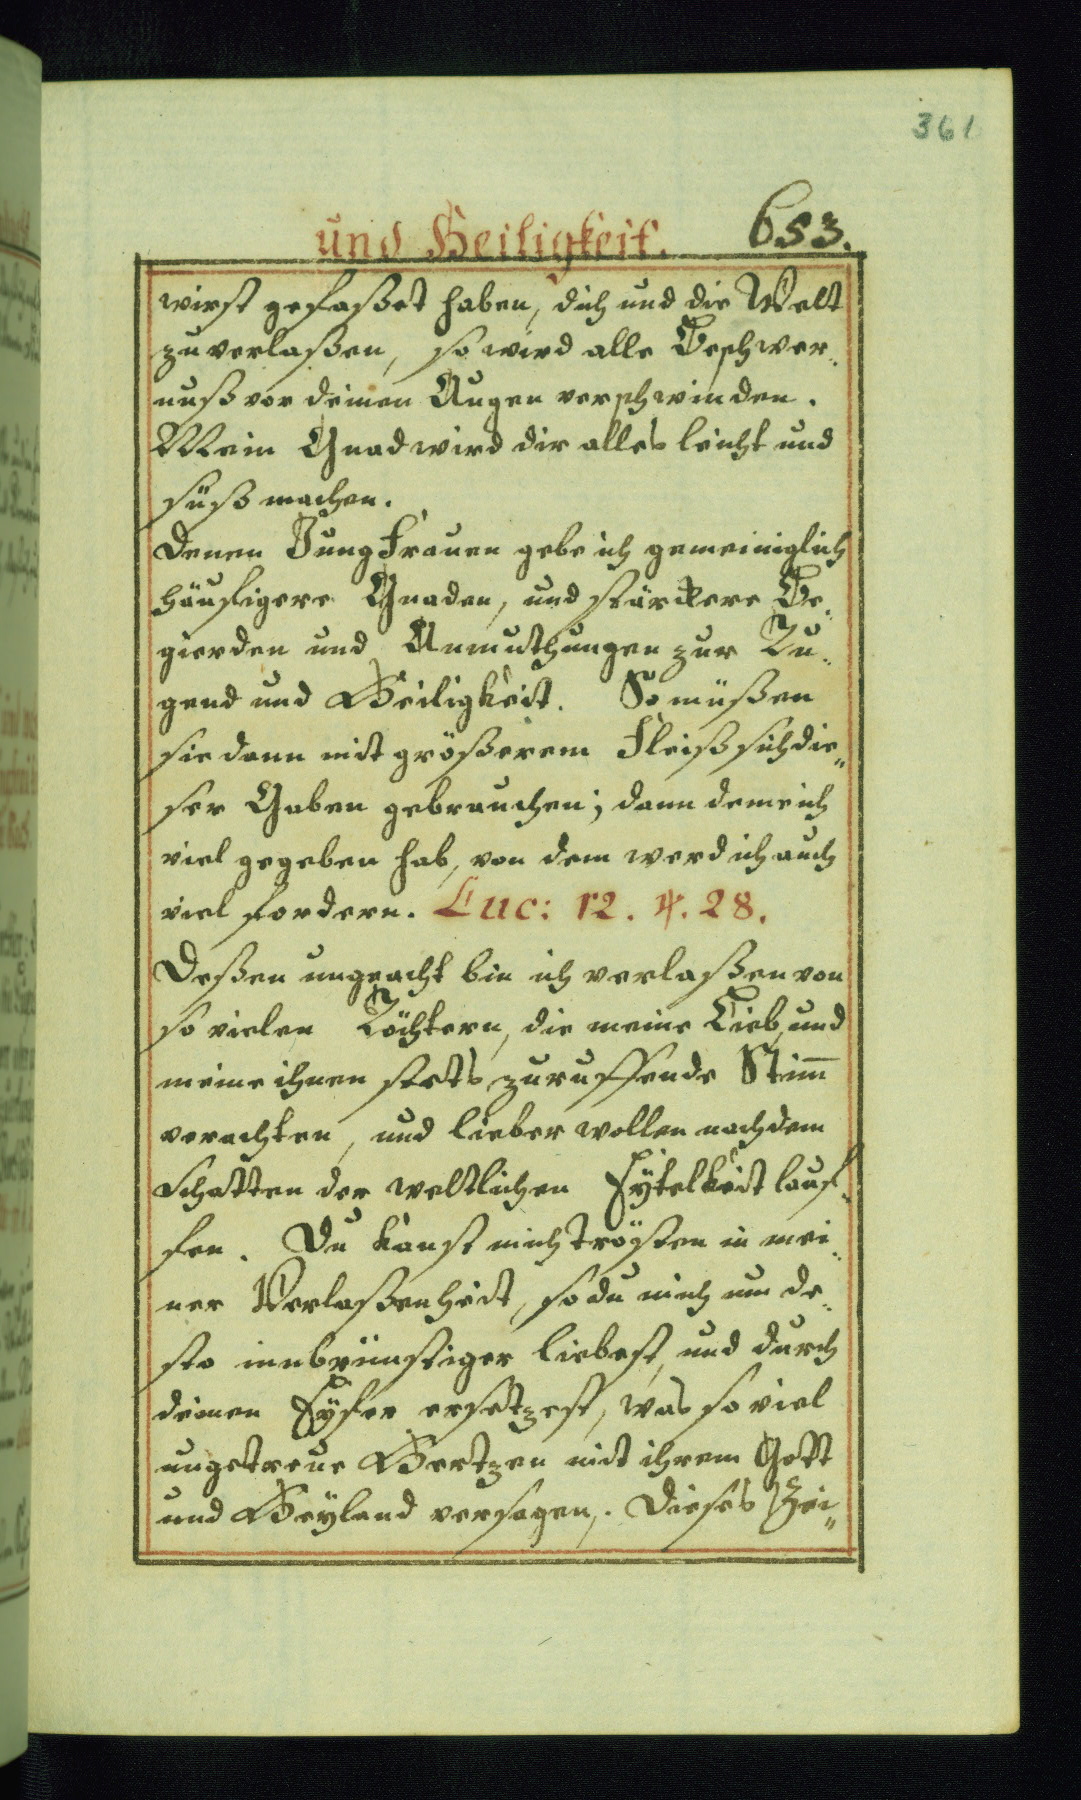 361
und Heiligkeit. 653.
wirst gefaßet haben, dich und die Welt
zu verlaßen, so wird alle Beschwer„
nuß vor deinen Augen verschwinden.
Mein Gnad wird dir alles leicht und
süß machen.
Denen Jungfrauen gebe ich gemeiniglich
häuffigere Gnaden, und stärckere Be„
gierden und Anmuthungen zur Tu„
gend und Heiligkeit. So müßen
sie dann mit größerem Fleiß sich die„
ser Gaben gebrauchen; dann deme ich
viel gegeben hab, von dem werd ich auch
viel fordern. Luc: 12. ℣. 28.
Deßen ungeacht bin ich verlaßen von
so vielen Töchtern, die meine Lieb, und
meine ihnen stets zuruffende Stim̄
verachten, und lieber wollen nach dem
Schatten der weltlichen Eytelkeit lauf„
fen. Du kanst mich trösten in mei„
ner Verlaßenheit, so du mich um de„
sto innbrünstiger liebest, und durch
deinen Eyfer ersetzest, was so viel
ungetreue Hertzen mit ihrem Gott
und Heyland versagen. Dieses Zei„